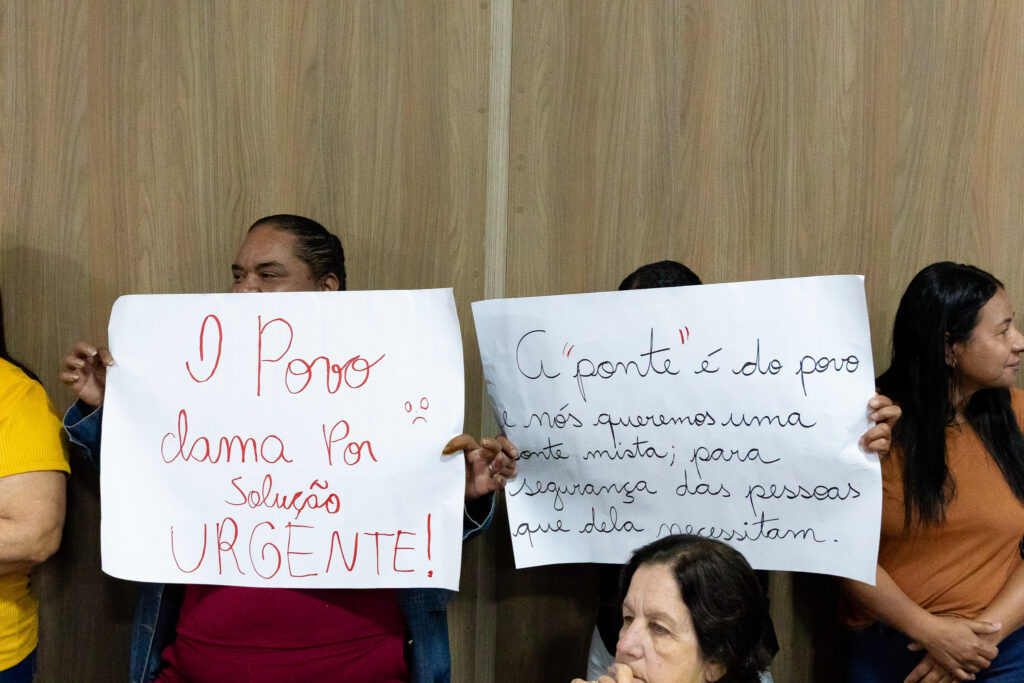 O Povo
clama Por
Solução
URGENTE!
A "ponte" é do povo
e nós queremos uma
ponte mista; para
segurança das pessoas
que dela necessitam.